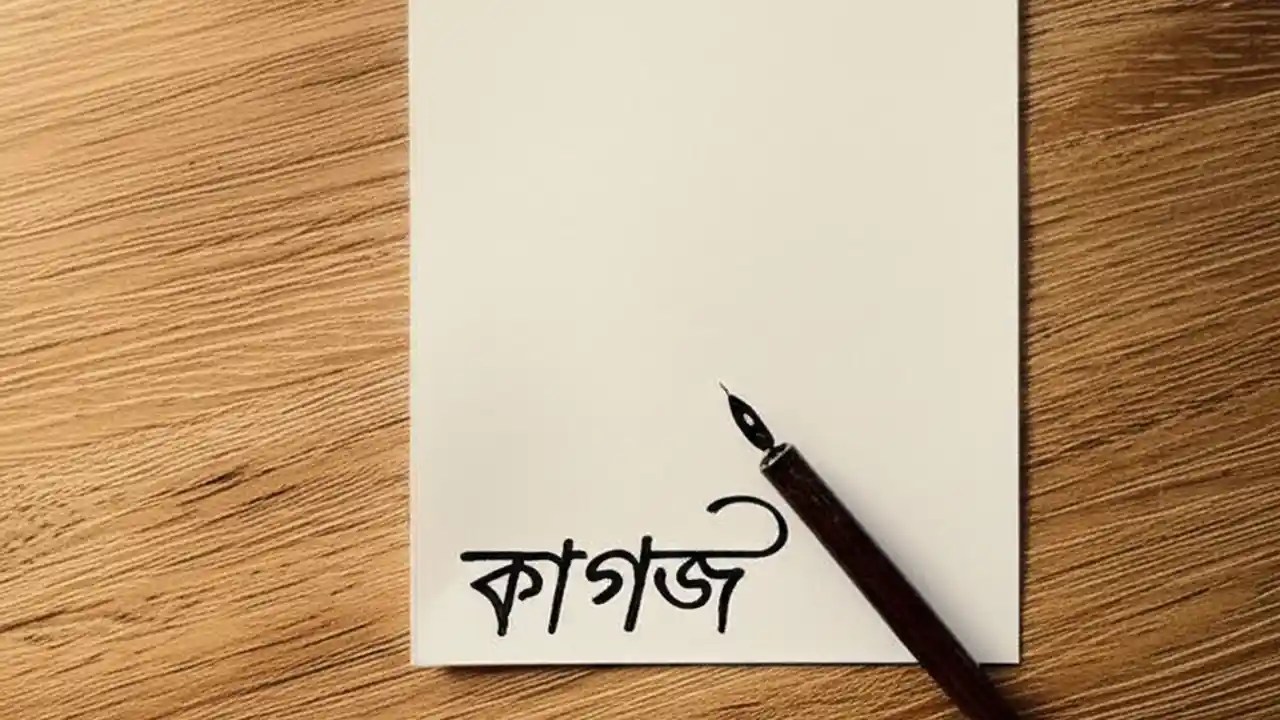 কাগজ